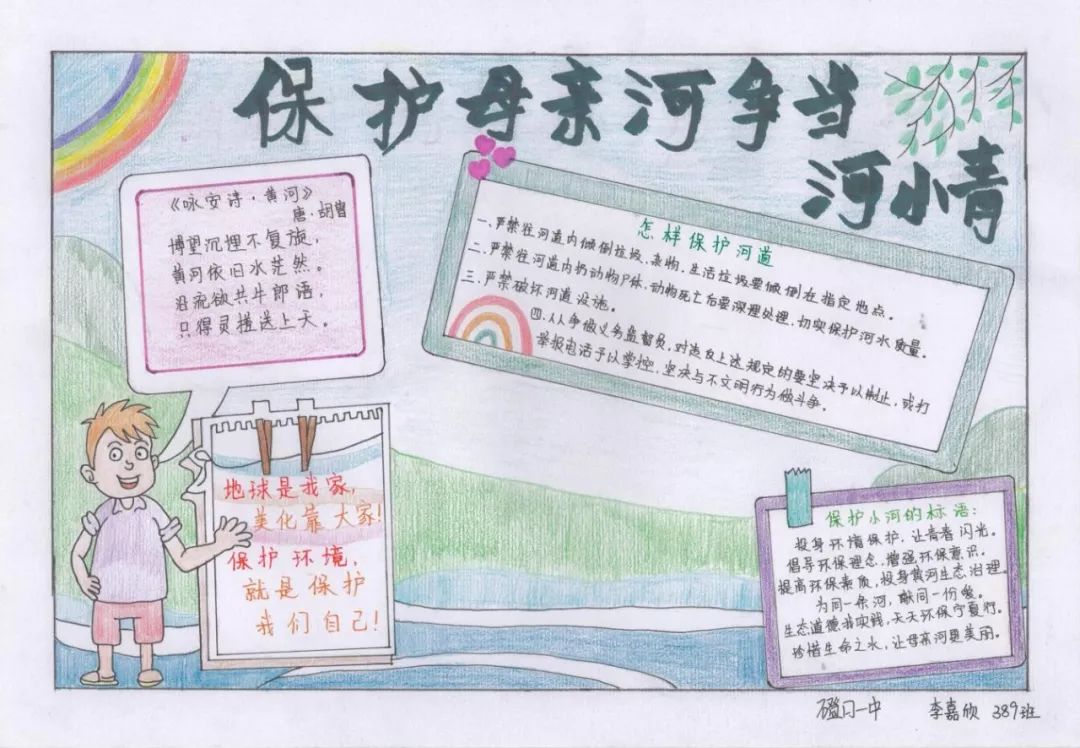 保护母亲河争当
河小青
《咏安诗·黄河》
唐·胡曾
博望沉埋不复旋，
黄河依旧水茫然。
沿流欲共牛郎语，
只得灵槎送上天。
怎样保护河道
一、严禁往河道内倾倒垃圾、杂物、生活垃圾要倾倒在指定地点。
二、严禁往河道内扔动物尸体，动物死亡后要深埋处理，切实保护河水质量。
三、严禁破坏河道设施。
四、人人争做义务监督员，对违反上述规定的要坚决予以制止，或打
举报电话予以掌控，坚决与不文明行为做斗争。
地球是我家，
美化靠大家！
保护环境，
就是保护
我们自己！
保护小河的标语：
投身环境保护，让青春闪光。
倡导环保理念，增强环保意识。
提高环保素质，投身黄河生态治理。
为同一条河，献同一份爱。
生态道德我实践，天天环保宁夏行。
珍惜生命之水，让母亲河更美丽。
磴口一中 李嘉欣 389班